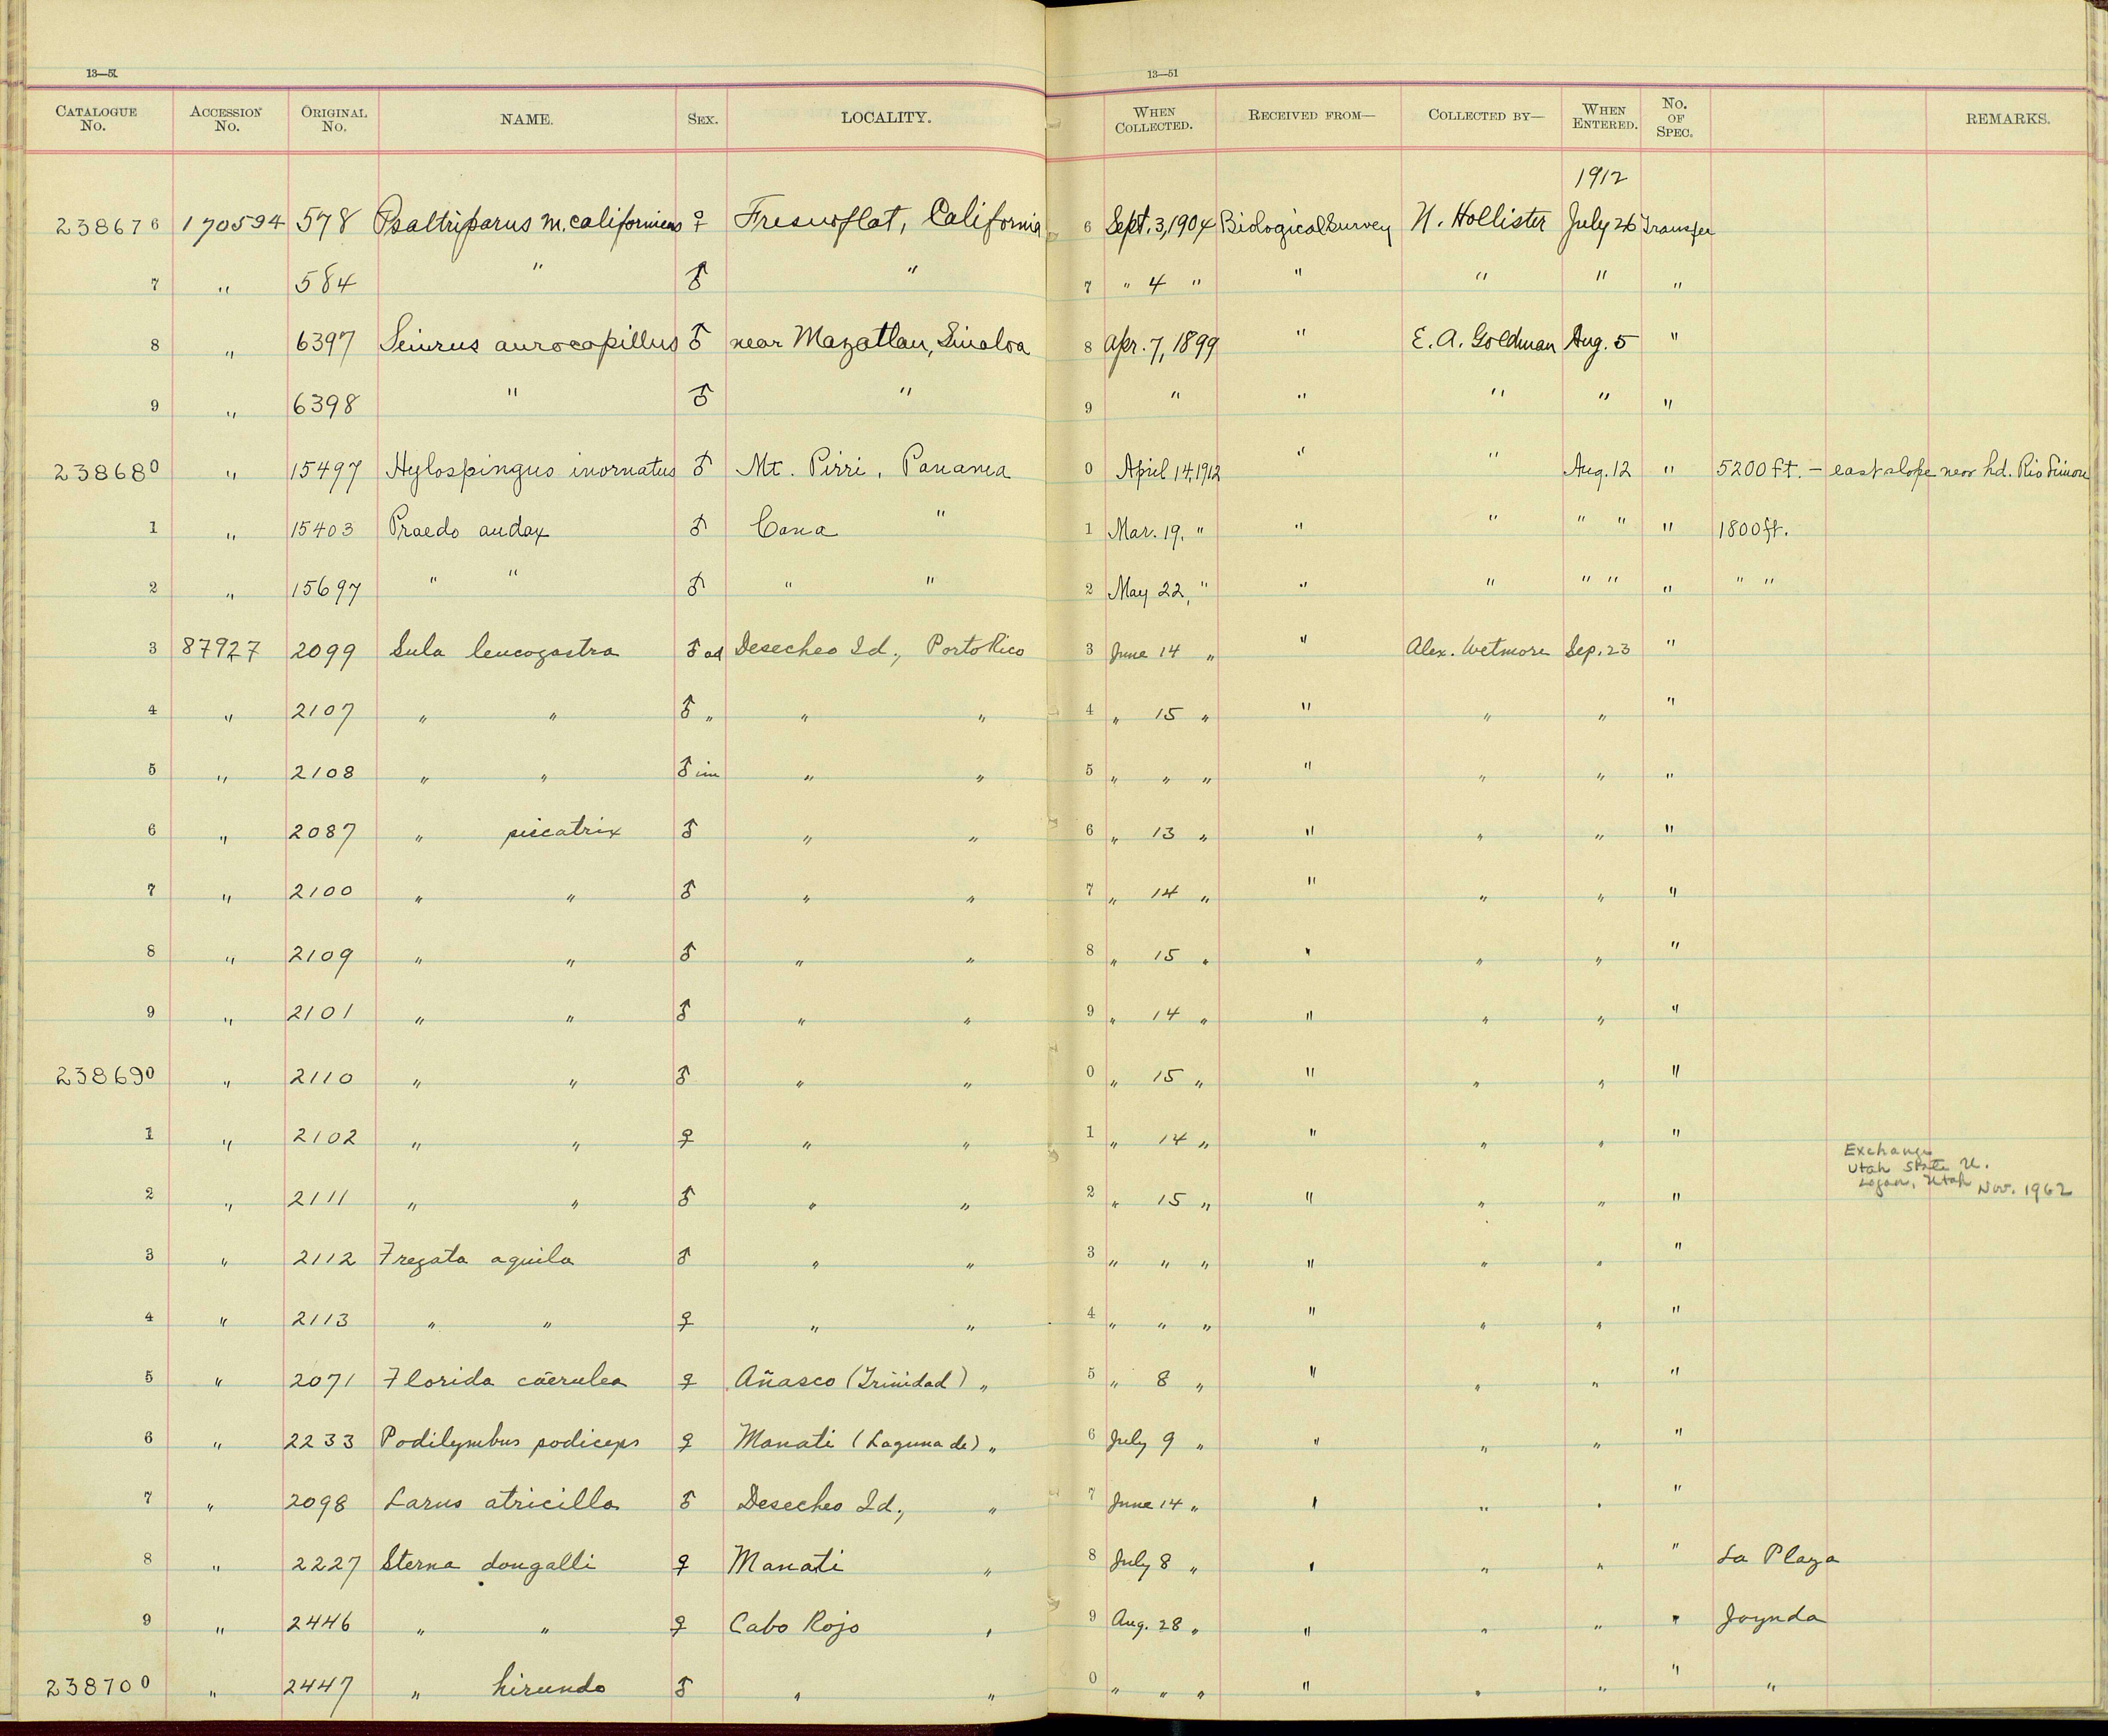 13—51
13—51
CATALOGUE No. ACCESSION No. ORIGINAL No. NAME. SEX. LOCALITY. WHEN COLLECTED. RECEIVED FROM— COLLECTED BY— WHEN ENTERED. No. OF SPEC. REMARKS.
1912
238676 170594 578 Psaltriparus m. californicus ♀ Fresnoflat, California 6 Sept. 3, 1904 Biological Survey N. Hollister July 26 Transfer
7 " 584 " ♂ " 7 " 4 " " " " "
8 " 6397 Seiurus aurocapillus ♂ near Mazatlan, Sinaloa 8 Apr. 7, 1899 " E. A. Goldman Aug. 5 "
9 " 6398 " ♂ " 9 " " " " "
238680 " 15497 Hylospingus inornatus ♂ Mt. Pirri, Panama 0 April 14, 1912 " " Aug. 12 " 5200 ft. — east slope near hd. Rio Limon
1 " 15403 Praedo audax ♂ Cana " 1 Mar. 19, " " " " " " 1800 ft.
2 " 15697 " " ♂ " " 2 May 22, " " " " " " " "
3 87927 2099 Sula leucogastra ♂ ad Desecheo Id., Porto Rico 3 June 14 " " Alex. Wetmore Sep. 23 "
4 " 2107 " " ♂ " " " 4 " 15 " " " " "
5 " 2108 " " ♂ im " " 5 " " " " " " "
6 " 2087 " piscatrix ♂ " " 6 " 13 " " " " "
7 " 2100 " " ♂ " " 7 " 14 " " " " "
8 " 2109 " " ♂ " " 8 " 15 " " " " "
9 " 2101 " " ♂ " " 9 " 14 " " " " "
238690 " 2110 " " ♂ " " 0 " 15 " " " " "
1 " 2102 " " ♀ " " 1 " 14 " " " " "
Exchange
Utah State U.
Logan, Utah Nov. 1962
2 " 2111 " " ♂ " " 2 " 15 " " " " "
3 " 2112 Fregata aquila ♂ " " 3 " " " " " " "
4 " 2113 " " ♀ " " 4 " " " " " " "
5 " 2071 Florida cærulea ♀ Añasco (Trinidad) " 5 " 8 " " " " "
6 " 2233 Podilymbus podiceps ♀ Manati (Laguna de) " 6 July 9 " " " " "
7 " 2098 Larus atricilla ♂ Desecheo Id., " 7 June 14 " " " " "
8 " 2227 Sterna dougalli ♀ Manati " 8 July 8 " " " " " La Playa
9 " 2446 " " ♀ Cabo Rojo " 9 Aug. 28 " " " " " Joynda
238700 " 2447 " hirundo ♂ " " 0 " " " " " " " "